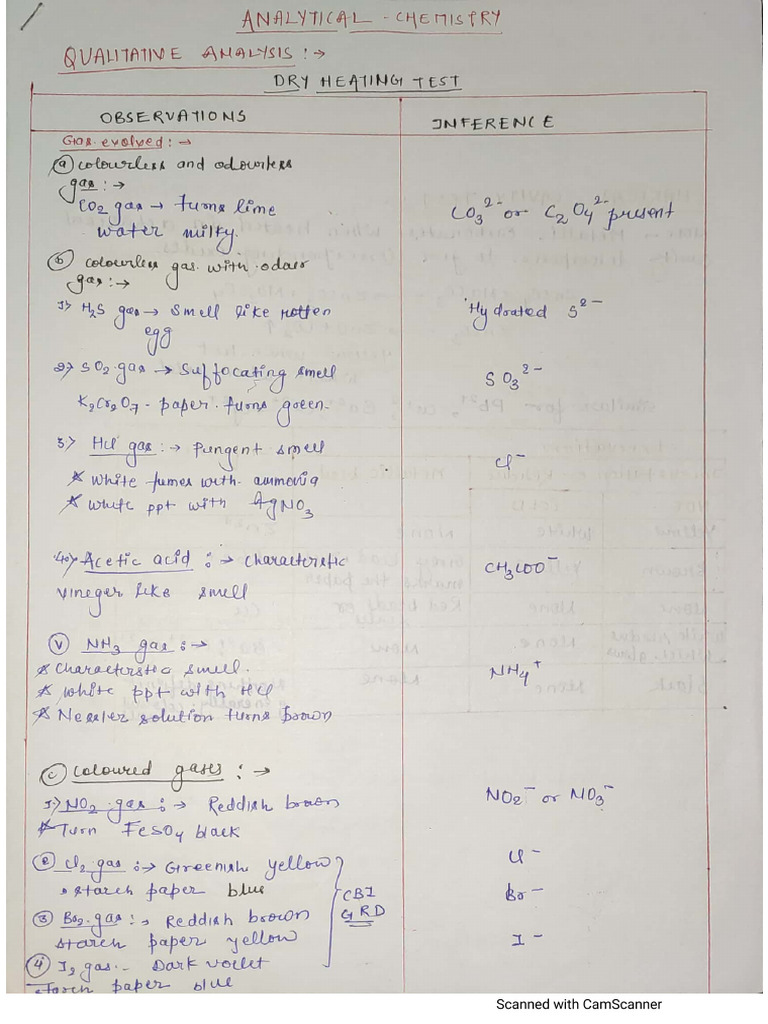 ANALYTICAL - CHEMISTRY
QUALITATIVE ANALYSIS :→
DRY HEATING TEST
OBSERVATIONS
INFERENCE
Gas evolved :→
(a) colourless and odourless
gas :→
CO2 gas → turns lime
water milky.
CO3²⁻ or C2O4²⁻ present
(b) colourless gas with odour
gas :→
1) H2S gas → smell like rotten
egg
Hydrated S²⁻
2) SO2 gas → Suffocating smell
K2Cr2O7 - paper turns green.
SO3²⁻
3) HCl gas :→ Pungent smell
* white fumes with ammonia
* white ppt with AgNO3
Cl⁻
4) Acetic acid :→ characteristic
vineger like smell
CH3COO⁻
(V) NH3 gas :→
* characterstic smell.
* white ppt with HCl
* Nessler solution turns brown
NH4⁺
(c) coloured gases :→
1) NO2 gas :→ Reddish brown
* Turn FeSO4 black
NO2⁻ or NO3⁻
(2) Cl2 gas :→ Greenish yellow
starch paper blue
Cl⁻
CBI
GRD
Br⁻
(3) Br2 gas :→ Reddish brown
starch paper yellow
I⁻
(4) I2 gas - Dark voilet
starch paper blue
Scanned with CamScanner